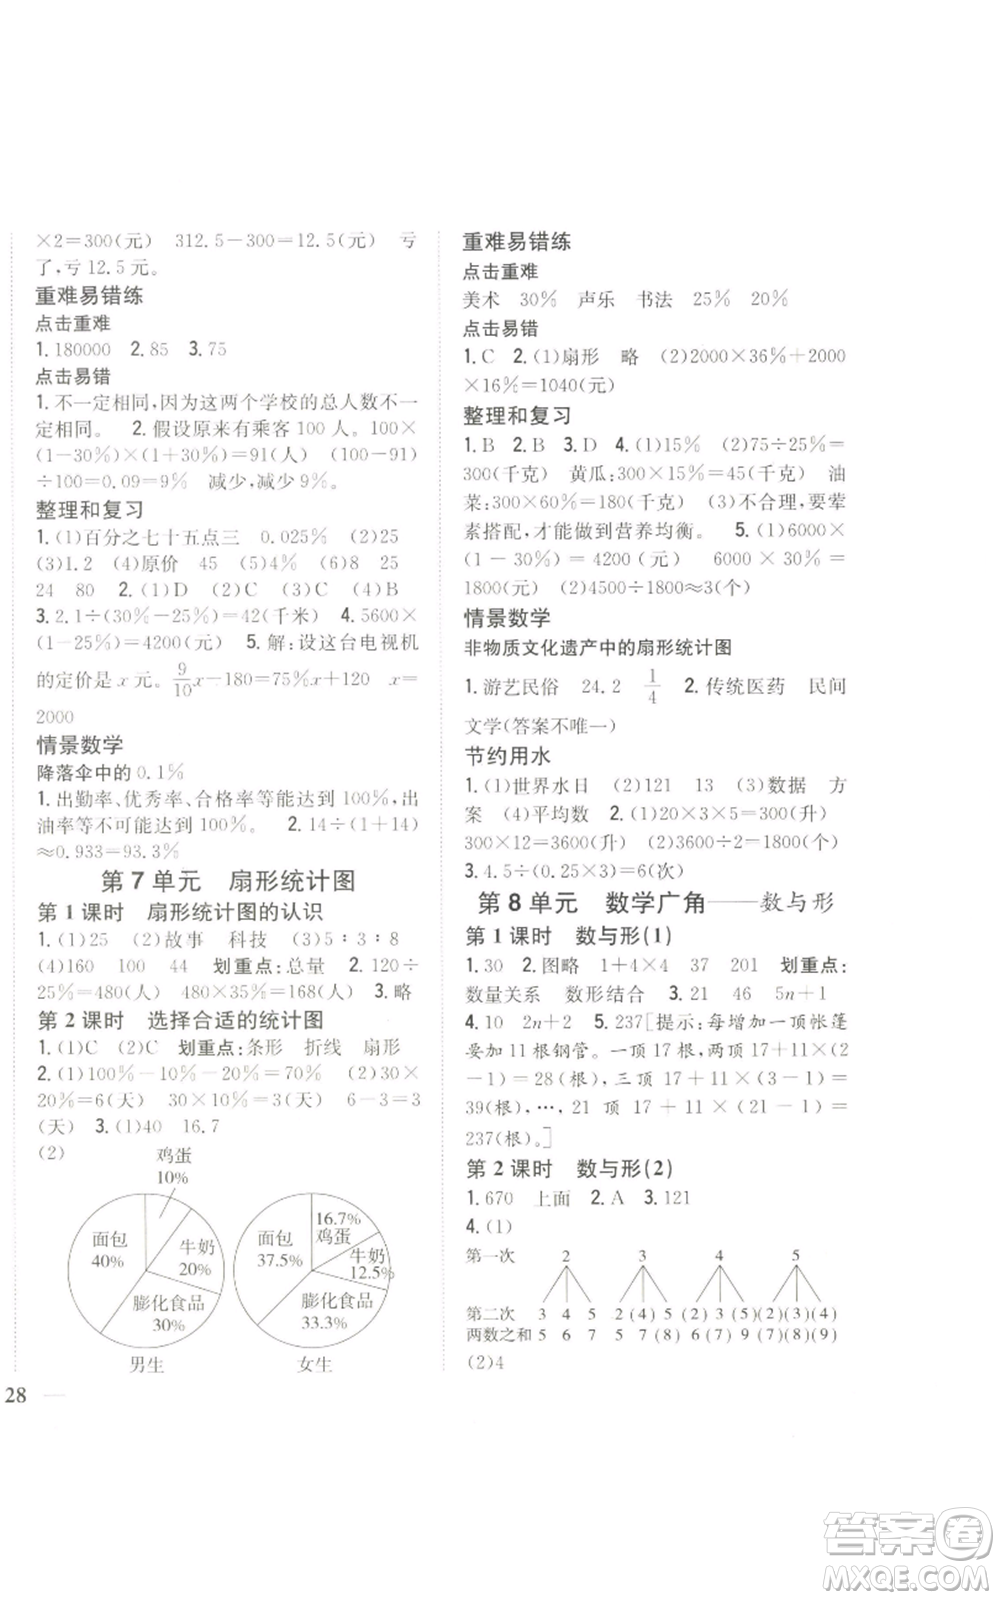 ×2=300(元) 312.5-300=12.5(元) 亏
了,亏 12.5 元。
重难易错练
点击重难
1. 180000 2. 85 3. 75
点击易错
1. 不一定相同,因为这两个学校的总人数不一
定相同。 2. 假设原来有乘客 100 人。100×
(1-30%)×(1+30%)=91(人) (100-91)
÷100=0.09=9% 减少,减少 9%。
整理和复习
1. (1)百分之七十五点三 0.025% (2)25
(3)1.2 (4)原价 45 (5)4 (6)8 25
24 80 2. (1)D (2)C (3)D (4)B
3. 2.1÷(30%-25%)=42(千米) 4. 5600×
(1-25%)=4200(元) 5. 解:设这台电视机
的定价是 x 元。9/10x-180=75%x+120 x=
2000
情景数学
降落伞中的 0.1%
1. 出勤率、优秀率、合格率等能达到 100%,出
油率等不可能达到 100%。 2. 14÷(1+14)
≈0.933=93.3%
第 7 单元 扇形统计图
第 1 课时 扇形统计图的认识
1. (1)25 (2)故事 科技 (3)5∶3∶8
(4)160 100 44 划重点:总量 2. 120÷
25%=480(人) 480×35%=168(人) 3. 略
第 2 课时 选择合适的统计图
1. (1)C (2)A 划重点:条形 折线 扇形
2. (1)100%-10%-20%=70% (2)30×
20%=6(天) 30×10%=3(天) 6-3=3
(天) 3. (1)40 16.7
(2)
鸡蛋
10%
面包
40%
牛奶
20%
膨化食品
30%
男生
16.7%
鸡蛋
面包
37.5%
牛奶
12.5%
膨化食品
33.3%
女生
28
重难易错练
点击重难
美术 30% 声乐 书法 25% 20%
点击易错
1. C 2. (1)扇形 略 (2)2000×36%+2000
×16%=1040(元)
整理和复习
1. B 2. B 3. D 4. (1)15% (2)75÷25%=
300(千克) 黄瓜:300×15%=45(千克) 油
菜:300×60%=180(千克) (3)不合理,要荤
素搭配,才能做到营养均衡。 5. (1)6000×
(1-30%)=4200(元) 6000×30%=
1800(元) (2)4500÷1800≈3(个)
情景数学
非物质文化遗产中的扇形统计图
1. 游艺民俗 24.2 1/4 2. 传统医药 民间
文学(答案不唯一)
节约用水
1. (1)世界水日 (2)121 13 (3)数据 方
案 (4)平均数 2. 20×3×5=300(升)
300×12=3600(升) 3600÷1800=2(个)
3. 4.5÷(0.25×3)=6(次)
第 8 单元 数学广角——数与形
第 1 课时 数与形(1)
1. 30 2. 图略 1+4×4 37 201 划重点:
数量关系 数形结合 3. 21 46 5n+1
4. 10 2n+2 5. 237[提示:每增加一顶帐篷
要加 11 根钢管。一顶 17 根,两顶 17+11×(2
-1)=28(根),三顶 17+11×(3-1)=
39(根),…,21 顶 17+11×(21-1)=
237(根)。]
第 2 课时 数与形(2)
1. 670 上面 2. A 3. 121
4. (1)
第一次 2 3 4 5
第二次 3 4 5 2 (4) (5) (2) (3) (5) (2) (3) (4)
两数之和 5 6 7 5 (7) (8) (6) (7) (9) (7) (8) (9)
(2)4
答案卷
MXQE.COM